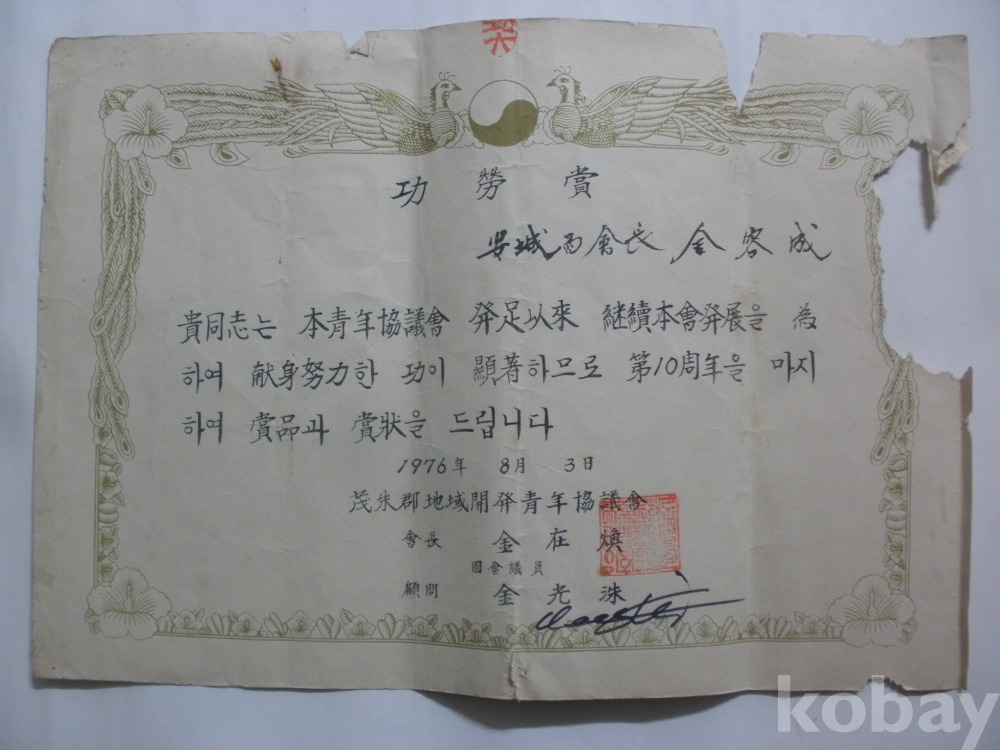 功勞賞
安城面會長 金容成
貴同志는 本青年協議會 発足以来 継續本會発展을 為
하여 献身努力한 功이 顯著하므로 第10周年을 마지
하여 賞品과 賞狀을 드립니다
1976年 8月 3日
茂朱郡地域開発青年協議會
會長 金在煥
國會議員
顧問 金光洙
kobay